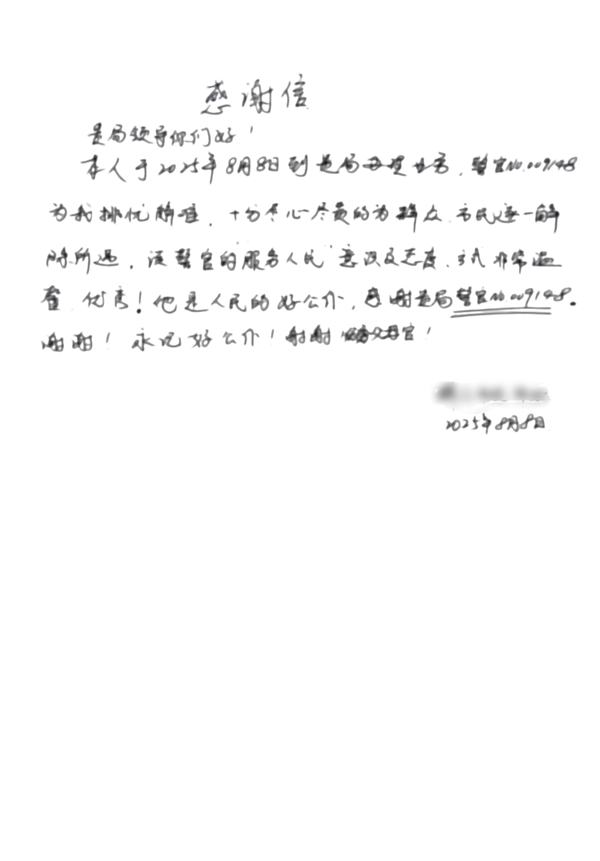 感谢信
是局领导你们好！
本人于2025年8月8日到是局办理业务，警官No.009148
为我排忧解难，十分尽心尽责的为群众、市民逐一解
除所遇，该警官的"服务人民"意识及态度、方式非常温
馨、优秀！他是人民的好公仆，感谢是局警官No.009148。
谢谢！永记好公仆！谢谢父母官！
2025年8月8日